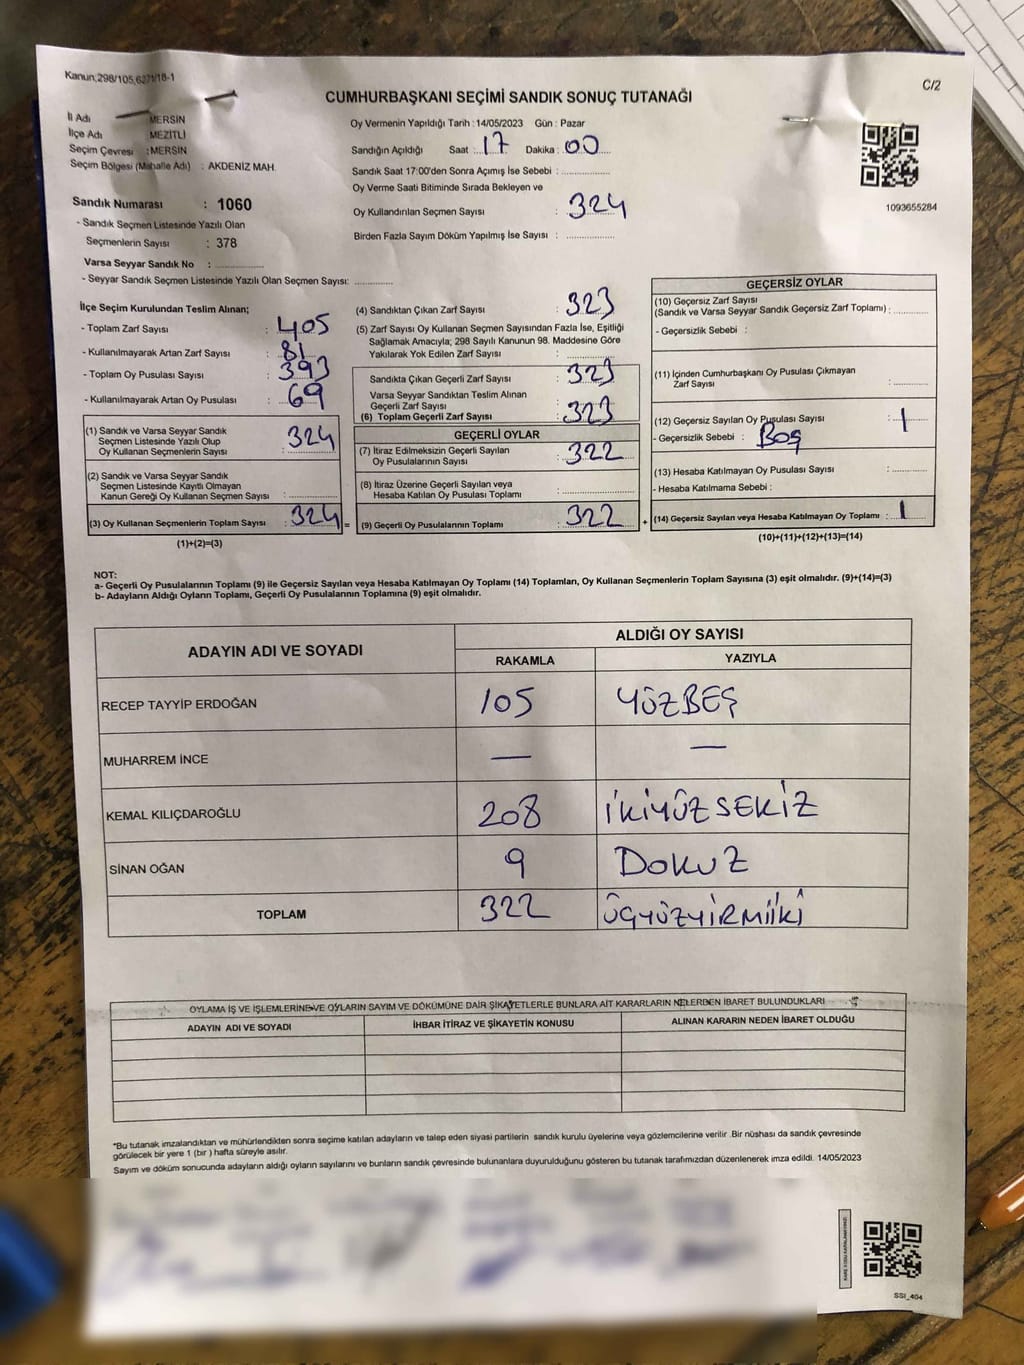 Kanun;298/105,6271/18-1
C/2
CUMHURBAŞKANI SEÇİMİ SANDIK SONUÇ TUTANAĞI
İl Adı MERSİN
İlçe Adı MEZİTLİ
Seçim Çevresi :MERSİN
Seçim Bölgesi (Mahalle Adı) : AKDENİZ MAH.
Sandık Numarası : 1060
- Sandık Seçmen Listesinde Yazılı Olan
Seçmenlerin Sayısı : 378
Varsa Seyyar Sandık No :
- Seyyar Sandık Seçmen Listesinde Yazılı Olan Seçmen Sayısı:
Oy Vermenin Yapıldığı Tarih : 14/05/2023 Gün : Pazar
Sandığın Açıldığı Saat : 17 Dakika : 00
Sandık Saat 17:00'den Sonra Açımış İse Sebebi :
Oy Verme Saati Bitiminde Sırada Bekleyen ve
Oy Kullandırılan Seçmen Sayısı : 324
Birden Fazla Sayım Döküm Yapılmış İse Sayısı :
1093655284
İlçe Seçim Kurulundan Teslim Alınan;
- Toplam Zarf Sayısı : 405
- Kullanılmayarak Artan Zarf Sayısı : 81
- Toplam Oy Pusulası Sayısı : 393
- Kullanılmayarak Artan Oy Pusulası : 69
(1) Sandık ve Varsa Seyyar Sandık
Seçmen Listesinde Yazılı Olup
Oy Kullanan Seçmenlerin Sayısı : 324
(2) Sandık ve Varsa Seyyar Sandık
Seçmen Listesinde Kayıtlı Olmayan
Kanun Gereği Oy Kullanan Seçmen Sayısı :
(3) Oy Kullanan Seçmenlerin Toplam Sayısı : 324 =
(1)+(2)=(3)
(4) Sandıktan Çıkan Zarf Sayısı : 323
(5) Zarf Sayısı Oy Kullanan Seçmen Sayısından Fazla İse, Eşitliği
Sağlamak Amacıyla; 298 Sayılı Kanunun 98. Maddesine Göre
Yakılarak Yok Edilen Zarf Sayısı :
Sandıkta Çıkan Geçerli Zarf Sayısı : 323
Varsa Seyyar Sandıktan Teslim Alınan
Geçerli Zarf Sayısı :
(6) Toplam Geçerli Zarf Sayısı : 323
GEÇERLİ OYLAR
(7) İtiraz Edilmeksizin Geçerli Sayılan
Oy Pusulalarının Sayısı : 322
(8) İtiraz Üzerine Geçerli Sayılan veya
Hesaba Katılan Oy Pusulası Toplamı :
(9) Geçerli Oy Pusulalarının Toplamı : 322 +
GEÇERSİZ OYLAR
(10) Geçersiz Zarf Sayısı
(Sandık ve Varsa Seyyar Sandık Geçersiz Zarf Toplamı) :
- Geçersizlik Sebebi :
(11) İçinden Cumhurbaşkanı Oy Pusulası Çıkmayan
Zarf Sayısı :
(12) Geçersiz Sayılan Oy Pusulası Sayısı : 1
- Geçersizlik Sebebi : Boş
(13) Hesaba Katılmayan Oy Pusulası Sayısı :
- Hesaba Katılmama Sebebi :
(14) Geçersiz Sayılan veya Hesaba Katılmayan Oy Toplamı : 1
(10)+(11)+(12)+(13)=(14)
NOT:
a- Geçerli Oy Pusulalarının Toplamı (9) ile Geçersiz Sayılan veya Hesaba Katılmayan Oy Toplamı (14) Toplamları, Oy Kullanan Seçmenlerin Toplam Sayısına (3) eşit olmalıdır. (9)+(14)=(3)
b- Adayların Aldığı Oyların Toplamı, Geçerli Oy Pusulalarının Toplamına (9) eşit olmalıdır.
ADAYIN ADI VE SOYADI ALDIĞI OY SAYISI
RAKAMLA YAZIYLA
RECEP TAYYİP ERDOĞAN 105 YÜZBEŞ
MUHARREM İNCE — —
KEMAL KILIÇDAROĞLU 208 İKİYÜZSEKİZ
SİNAN OĞAN 9 DOKUZ
TOPLAM 322 ÜÇYÜZYİRMİİKİ
OYLAMA İŞ VE İŞLEMLERİNE VE OYLARIN SAYIM VE DÖKÜMÜNE DAİR ŞİKAYETLERLE BUNLARA AİT KARARLARIN NELERDEN İBARET BULUNDUKLARI
ADAYIN ADI VE SOYADI İHBAR İTİRAZ VE ŞİKAYETİN KONUSU ALINAN KARARIN NEDEN İBARET OLDUĞU
*Bu tutanak imzalandıktan ve mühürlendikten sonra seçime katılan adayların ve talep eden siyasi partilerin sandık kurulu üyelerine veya gözlemcilerine verilir .Bir nüshası da sandık çevresinde
görülecek bir yere 1 (bir ) hafta süreyle asılır.
Sayım ve döküm sonucunda adayların aldığı oyların sayılarını ve bunların sandık çevresinde bulunanlara duyurulduğunu gösteren bu tutanak tarafımızdan düzenlenerek imza edildi. 14/05/2023
SSI_404